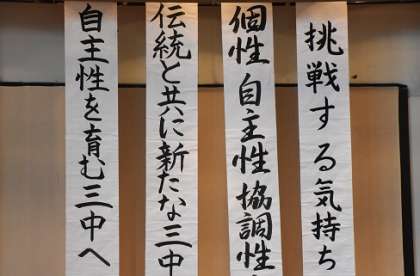 挑戦する気持ち
個性 自主性 協調性
伝統と共に新たな三中
自主性を育む三中へ